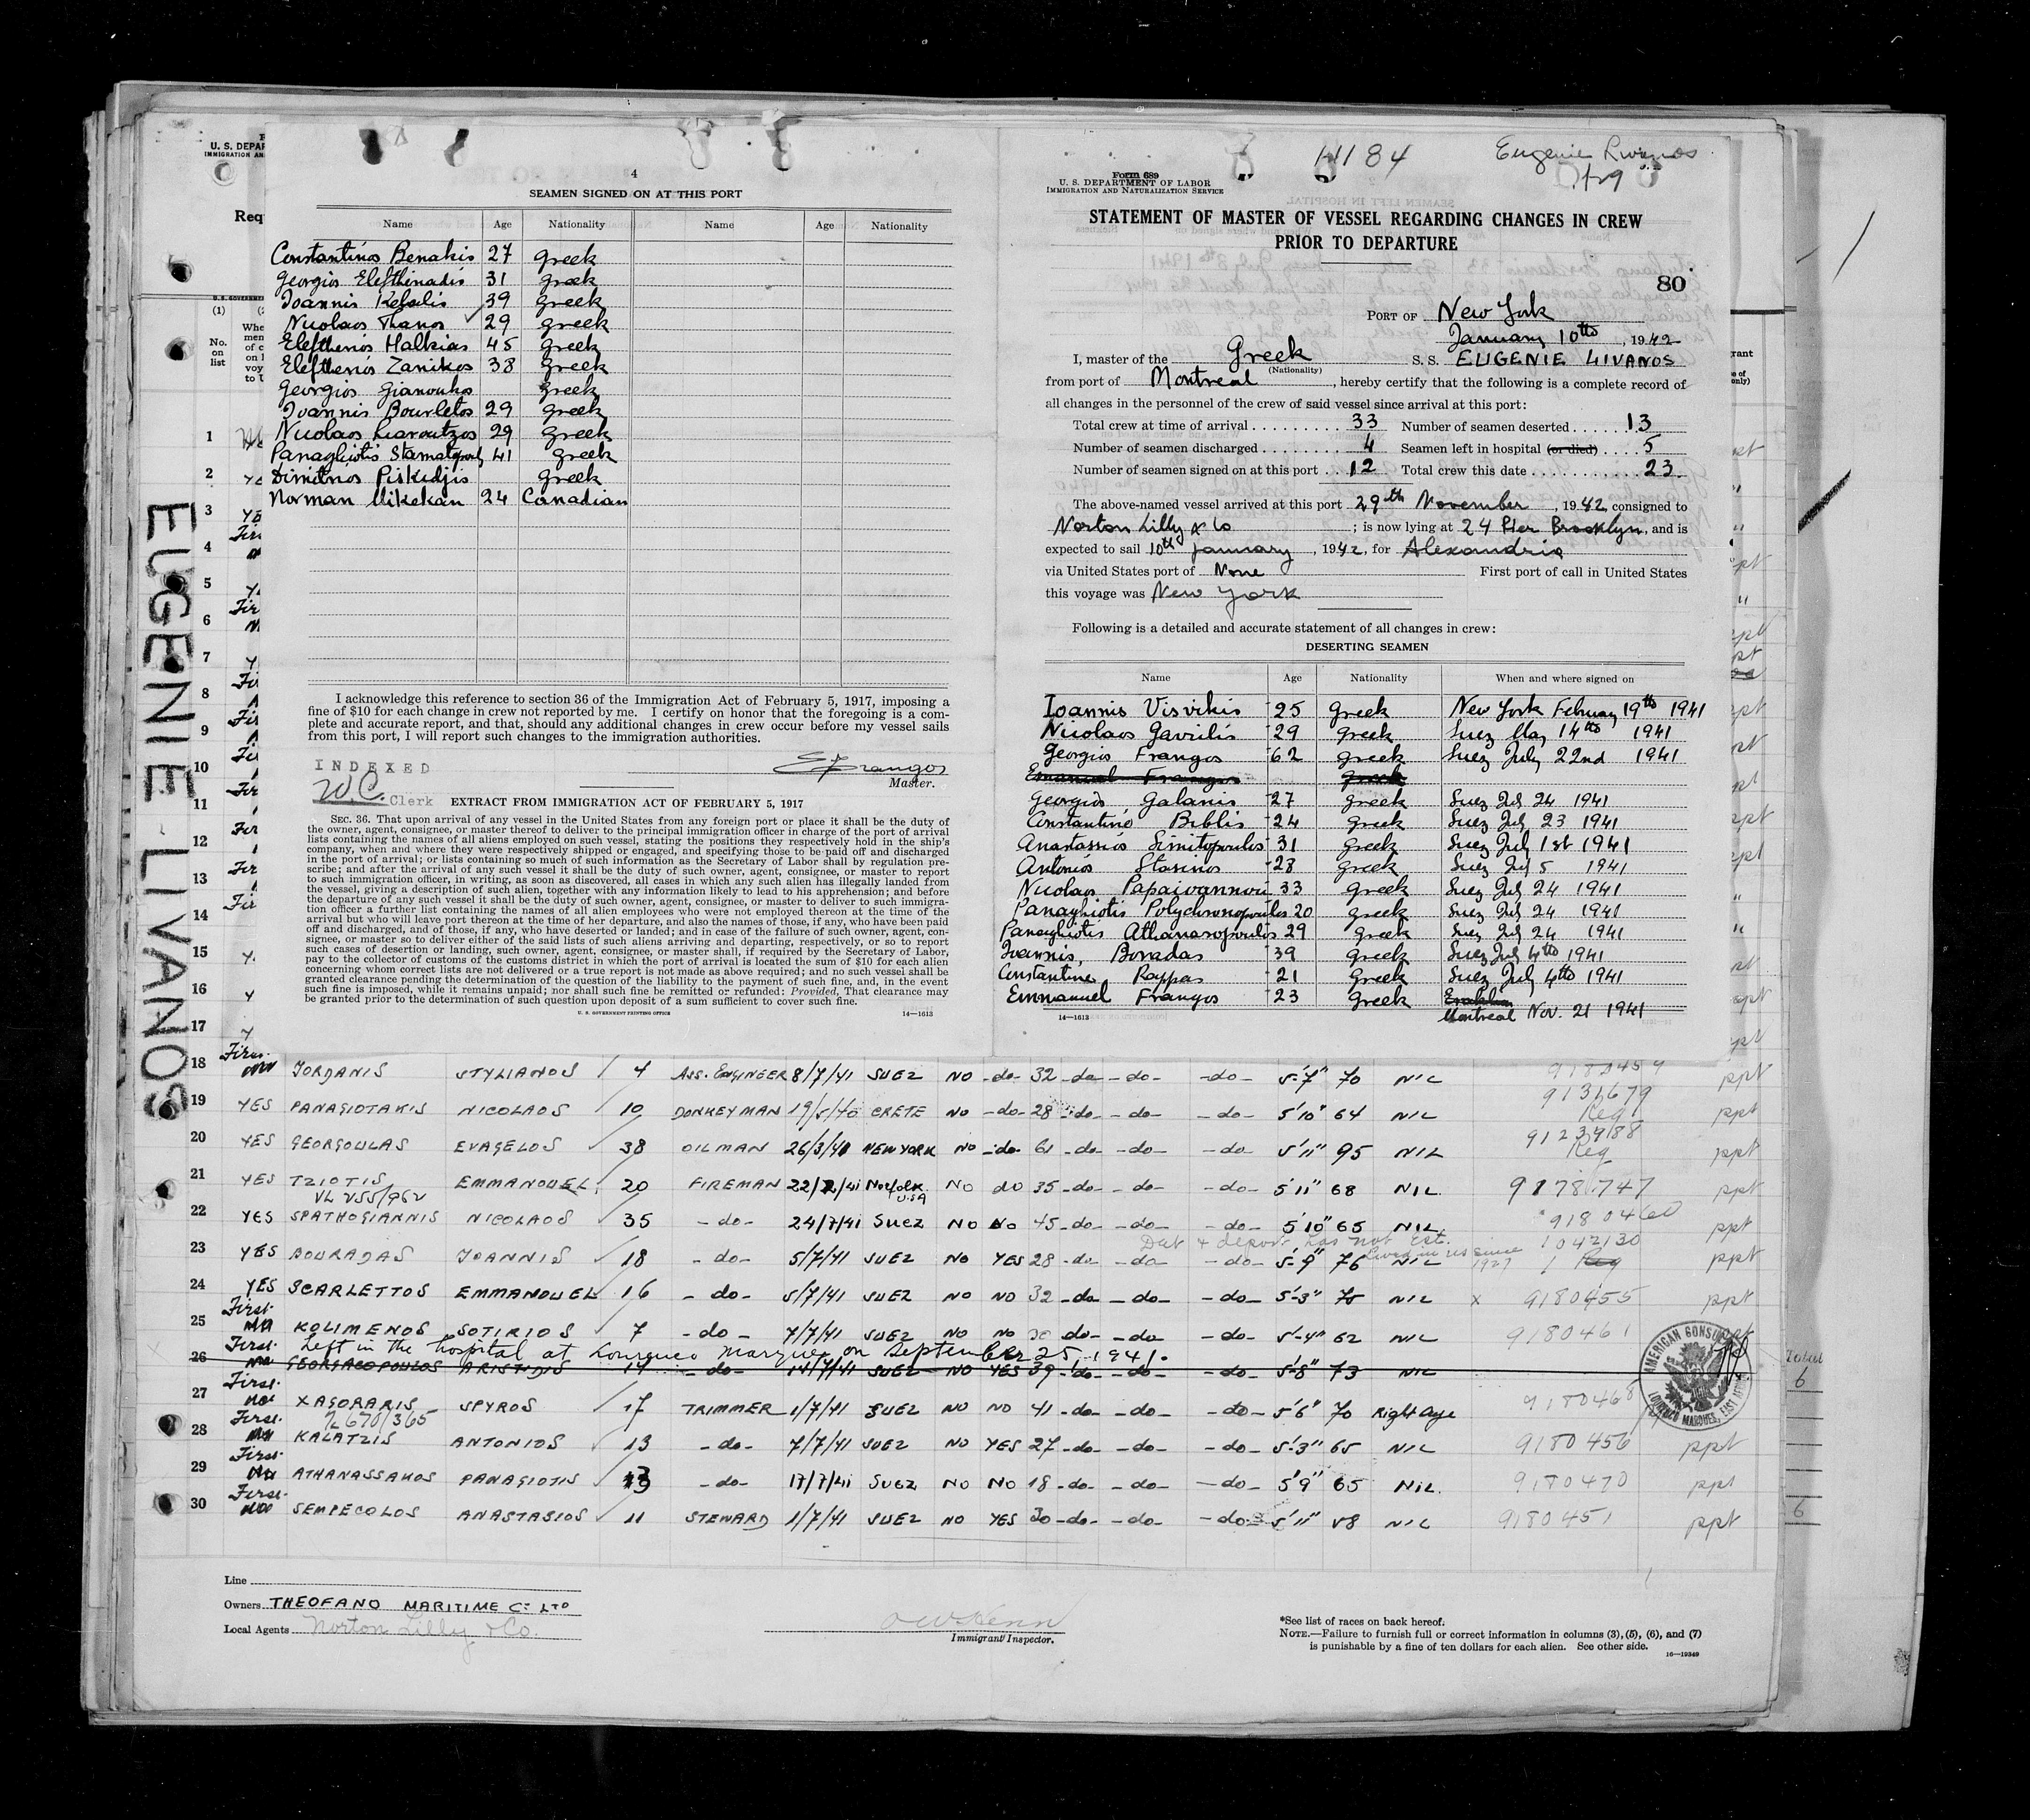 4
SEAMEN SIGNED ON AT THIS PORT
Name Age Nationality Name Age Nationality
Constantinos Benakis 27 Greek
Georgios Eleftheriadis 31 Greek
Ioannis Kefalis 39 Greek
Nicolaos Thanos 29 Greek
Eleftherios Halkias 45 Greek
Eleftherios Zanikos 38 Greek
Georgios Gianoukos Greek
Ioannis Bourletos 29 Greek
Nicolaos 29 Greek
Panaghiotis 41 Greek
Dimitrios Piskidjis Greek
Norman Mikekan 24 Canadian
I acknowledge this reference to section 36 of the Immigration Act of February 5, 1917, imposing a
fine of $10 for each change in crew not reported by me. I certify on honor that the foregoing is a com-
plete and accurate report, and that, should any additional changes in crew occur before my vessel sails
from this port, I will report such changes to the immigration authorities.
INDEXED
W.C. Clerk
E Frangos
Master.
EXTRACT FROM IMMIGRATION ACT OF FEBRUARY 5, 1917
SEC. 36. That upon arrival of any vessel in the United States from any foreign port or place it shall be the duty of
the owner, agent, consignee, or master thereof to deliver to the principal immigration officer in charge of the port of arrival
lists containing the names of all aliens employed on such vessel, stating the positions they respectively hold in the ship's
company, when and where they were respectively shipped or engaged, and specifying those to be paid off and discharged
in the port of arrival; or lists containing so much of such information as the Secretary of Labor shall by regulation pre-
scribe; and after the arrival of any such vessel it shall be the duty of such owner, agent, consignee, or master to report
to such immigration officer, in writing, as soon as discovered, all cases in which any such alien has illegally landed from
the vessel, giving a description of such alien, together with any information likely to lead to his apprehension; and before
the departure of any such vessel it shall be the duty of such owner, agent, consignee, or master to deliver to such immigra-
tion officer a further list containing the names of all alien employees who were not employed thereon at the time of the
arrival but who will leave port thereon at the time of her departure, and also the names of those, if any, who have been paid
off and discharged, and of those, if any, who have deserted or landed; and in case of the failure of such owner, agent, con-
signee, or master so to deliver either of the said lists of such aliens arriving and departing, respectively, or so to report
such cases of desertion or landing, such owner, agent, consignee, or master shall, if required by the Secretary of Labor,
pay to the collector of customs of the customs district in which the port of arrival is located the sum of $10 for each alien
concerning whom correct lists are not delivered or a true report is not made as above required; and no such vessel shall be
granted clearance pending the determination of the question of the liability to the payment of such fine, and, in the event
such fine is imposed, while it remains unpaid; nor shall such fine be remitted or refunded: Provided, That clearance may
be granted prior to the determination of such question upon deposit of a sum sufficient to cover such fine.
U. S. GOVERNMENT PRINTING OFFICE 14—1613
Form 689
U. S. DEPARTMENT OF LABOR
IMMIGRATION AND NATURALIZATION SERVICE
Eugenie Livanos
STATEMENT OF MASTER OF VESSEL REGARDING CHANGES IN CREW
PRIOR TO DEPARTURE
80
PORT OF New York
January 10th, 1942
I, master of the Greek S. S. EUGENIE LIVANOS
(Nationality)
from port of Montreal, hereby certify that the following is a complete record of
all changes in the personnel of the crew of said vessel since arrival at this port:
Total crew at time of arrival 33 Number of seamen deserted 13
Number of seamen discharged 4 Seamen left in hospital (or died) 5
Number of seamen signed on at this port 12 Total crew this date 23
The above-named vessel arrived at this port 29th November, 1942, consigned to
Norton Lilly & Co; is now lying at 24 Pier Brooklyn, and is
expected to sail 10th January, 1942, for Alexandria
via United States port of None First port of call in United States
this voyage was New York
Following is a detailed and accurate statement of all changes in crew:
DESERTING SEAMEN
Name Age Nationality When and where signed on
Ioannis Visvikis 25 Greek New York February 19th 1941
Nicolaos Gavrilis 29 Greek Suez May 14th 1941
Georgios Frangos 62 Greek Suez July 22nd 1941
Emanuel Frangos Greek
Georgios Galanis 27 Greek Suez Jul 24 1941
Constantino Biblis 24 Greek Suez July 23 1941
Anastassios Simitopoulos 31 Greek Suez July 1st 1941
Antonios Stasinos 28 Greek Suez Jul 5 1941
Nicolaos Papaioannou 33 Greek Suez Jul 24 1941
Panaghiotis Polychronopoulos 20 Greek Suez Jul 24 1941
Panaghiotis Athanasopoulos 29 Greek Suez Jul 24 1941
Ioannis, Bouradas 39 Greek Suez July 4th 1941
Constantine Pappas 21 Greek Suez July 4th 1941
Emmanuel Frangos 23 Greek
Montreal Nov. 21 1941
14—1613
U. S. DEPAR
IMMIGRATION AN
Req
(1)
No. on list
EUGENIE LIVANOS
1
2
3
4
5
6
7
8
9
10
11
12
13
14
15
16
17
18 First JORDANIS STYLIANOS 4 ASS. ENGINEER 8/7/41 SUEZ NO -do- 32 -do- -do- -do- 5'-7" 70 NIL 9180454 ppt
19 YES PANAGIOTAKIS NICOLAOS 10 DONKEYMAN 19/5/40 CRETE NO -do- 28 -do- -do- -do- 5'10" 64 NIL 9131679 Reg ppt
20 YES GEORGOULAS EVAGELOS 38 OILMAN 26/3/41 NEW YORK NO -do- 61 -do- -do- -do- 5'11" 95 NIL Reg ppt
21 YES TZIOTIS EMMANOUEL 20 FIREMAN 22/2/41 Norfolk U.S.A NO do 35 -do- -do- -do- 5'11" 68 NIL. 9178747 ppt
VL 255/962
22 YES SPATHOGIANNIS NICOLAOS 35 -do- 24/7/41 Suez NO No 45 -do- -do- -do- 5'10" 65 NIL. 9180460 ppt
23 YES BOURADAS JOANNIS 18 -do- 5/7/41 SUEZ NO YES 28 -do- -do- -do- 5'-9" 76 NIL 1042130 Reg ppt
24 YES SCARLETTOS EMMANOUEL 16 -do- 5/7/41 SUEZ NO NO 32 -do- -do- -do- 5'-3" 75 NIL x 9180455 ppt
25 First KOLIMENOS SOTIRIOS 7 -do- 7/7/41 SUEZ NO No 30 do- -do- -do- 5'-4" 62 NIL 9180461 ppt
Left in the hospital at Lourenco Marques on September 25, 1941.
26 First GEORGACOPOULOS ARISTIDIS 14 -do- 14/7/41 SUEZ NO YES 39 -do- -do- -do- 5'-8" 73 NIL
27 First XAGORARIS SPYROS 17 TRIMMER 1/7/41 SUEZ NO NO 41 -do- -do- -do- 5'6" 70 Right aye 9180468
2670/365
28 First KALATZIS ANTONIOS 13 -do- 7/7/41 SUEZ NO YES 27 -do- -do- -do- 5'-3" 65 NIL 9180456 ppt
29 First ATHANASSAKOS PANAGIOTIS -do- 17/7/41 SUEZ NO NO 18 -do- -do- -do- 5'9" 65 NIL. 9180470 ppt
30 First SEMPECOLOS ANASTASIOS 11 STEWARD 1/7/41 SUEZ NO YES 30 -do- -do- -do- 5'11" 58 NIL 9180451 ppt
AMERICAN CONSULATE
LOURENCO MARQUES, EAST AFRICA
Total
6
6
Line
Owners THEOFANO MARITIME Co LTD
Local Agents Norton Lilly & Co.
Immigrant Inspector.
*See list of races on back hereof.
NOTE.—Failure to furnish full or correct information in columns (3), (5), (6), and (7)
is punishable by a fine of ten dollars for each alien. See other side.
16—19349